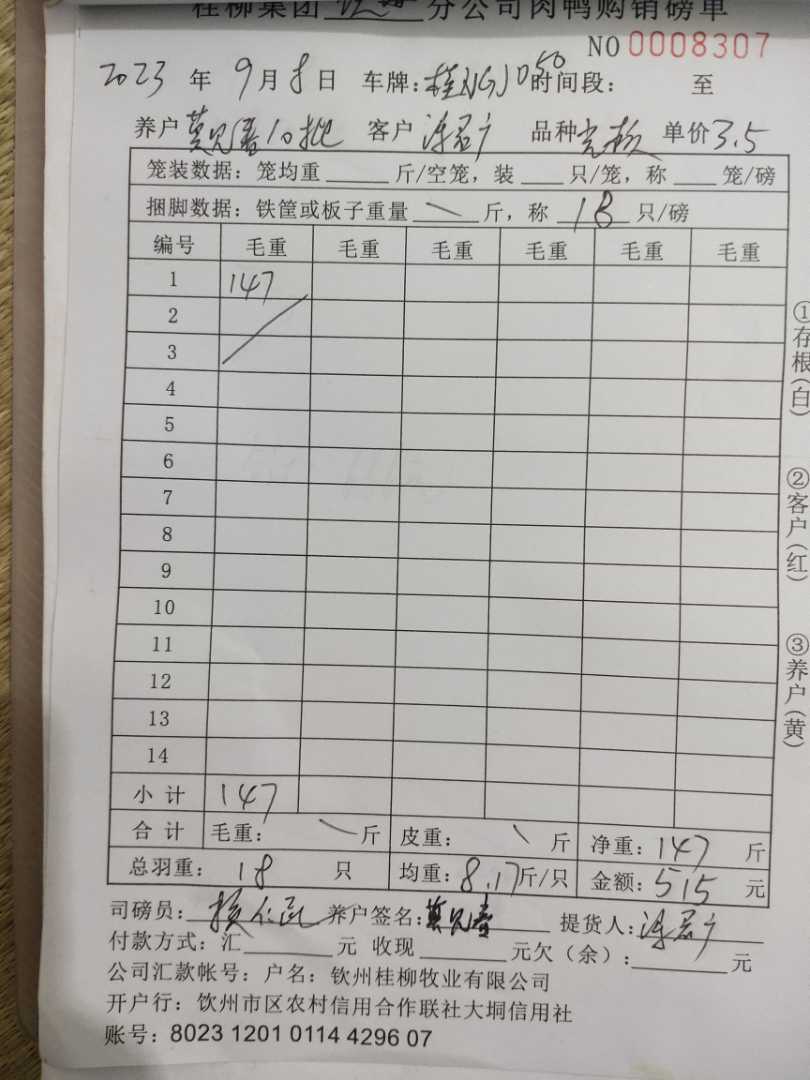 桂柳集团 分公司肉鸭购销磅单
NO 0008307
2023 年 9 月 8 日 车牌: 时间段: 至
养户 10批 客户 品种 单价 3.5
笼装数据: 笼均重 斤/空笼, 装 只/笼, 称 笼/磅
捆脚数据: 铁筐或板子重量 斤, 称 18 只/磅
编号 毛重 毛重 毛重 毛重 毛重 毛重
1 147
2
3
4
5
6
7
8
9
10
11
12
13
14
小计 147
合计 毛重: 斤 皮重: 斤 净重: 147 斤
总羽重: 18 只 均重: 8.17 斤/只 金额: 515 元
司磅员: 养户签名: 提货人:
付款方式: 汇 元 收现 元欠(余): 元
公司汇款帐号: 户名: 钦州桂柳牧业有限公司
开户行: 饮州市区农村信用合作联社大垌信用社
账号: 8023 1201 0114 4296 07
①存根(白)
②客户(红)
③养户(黄)